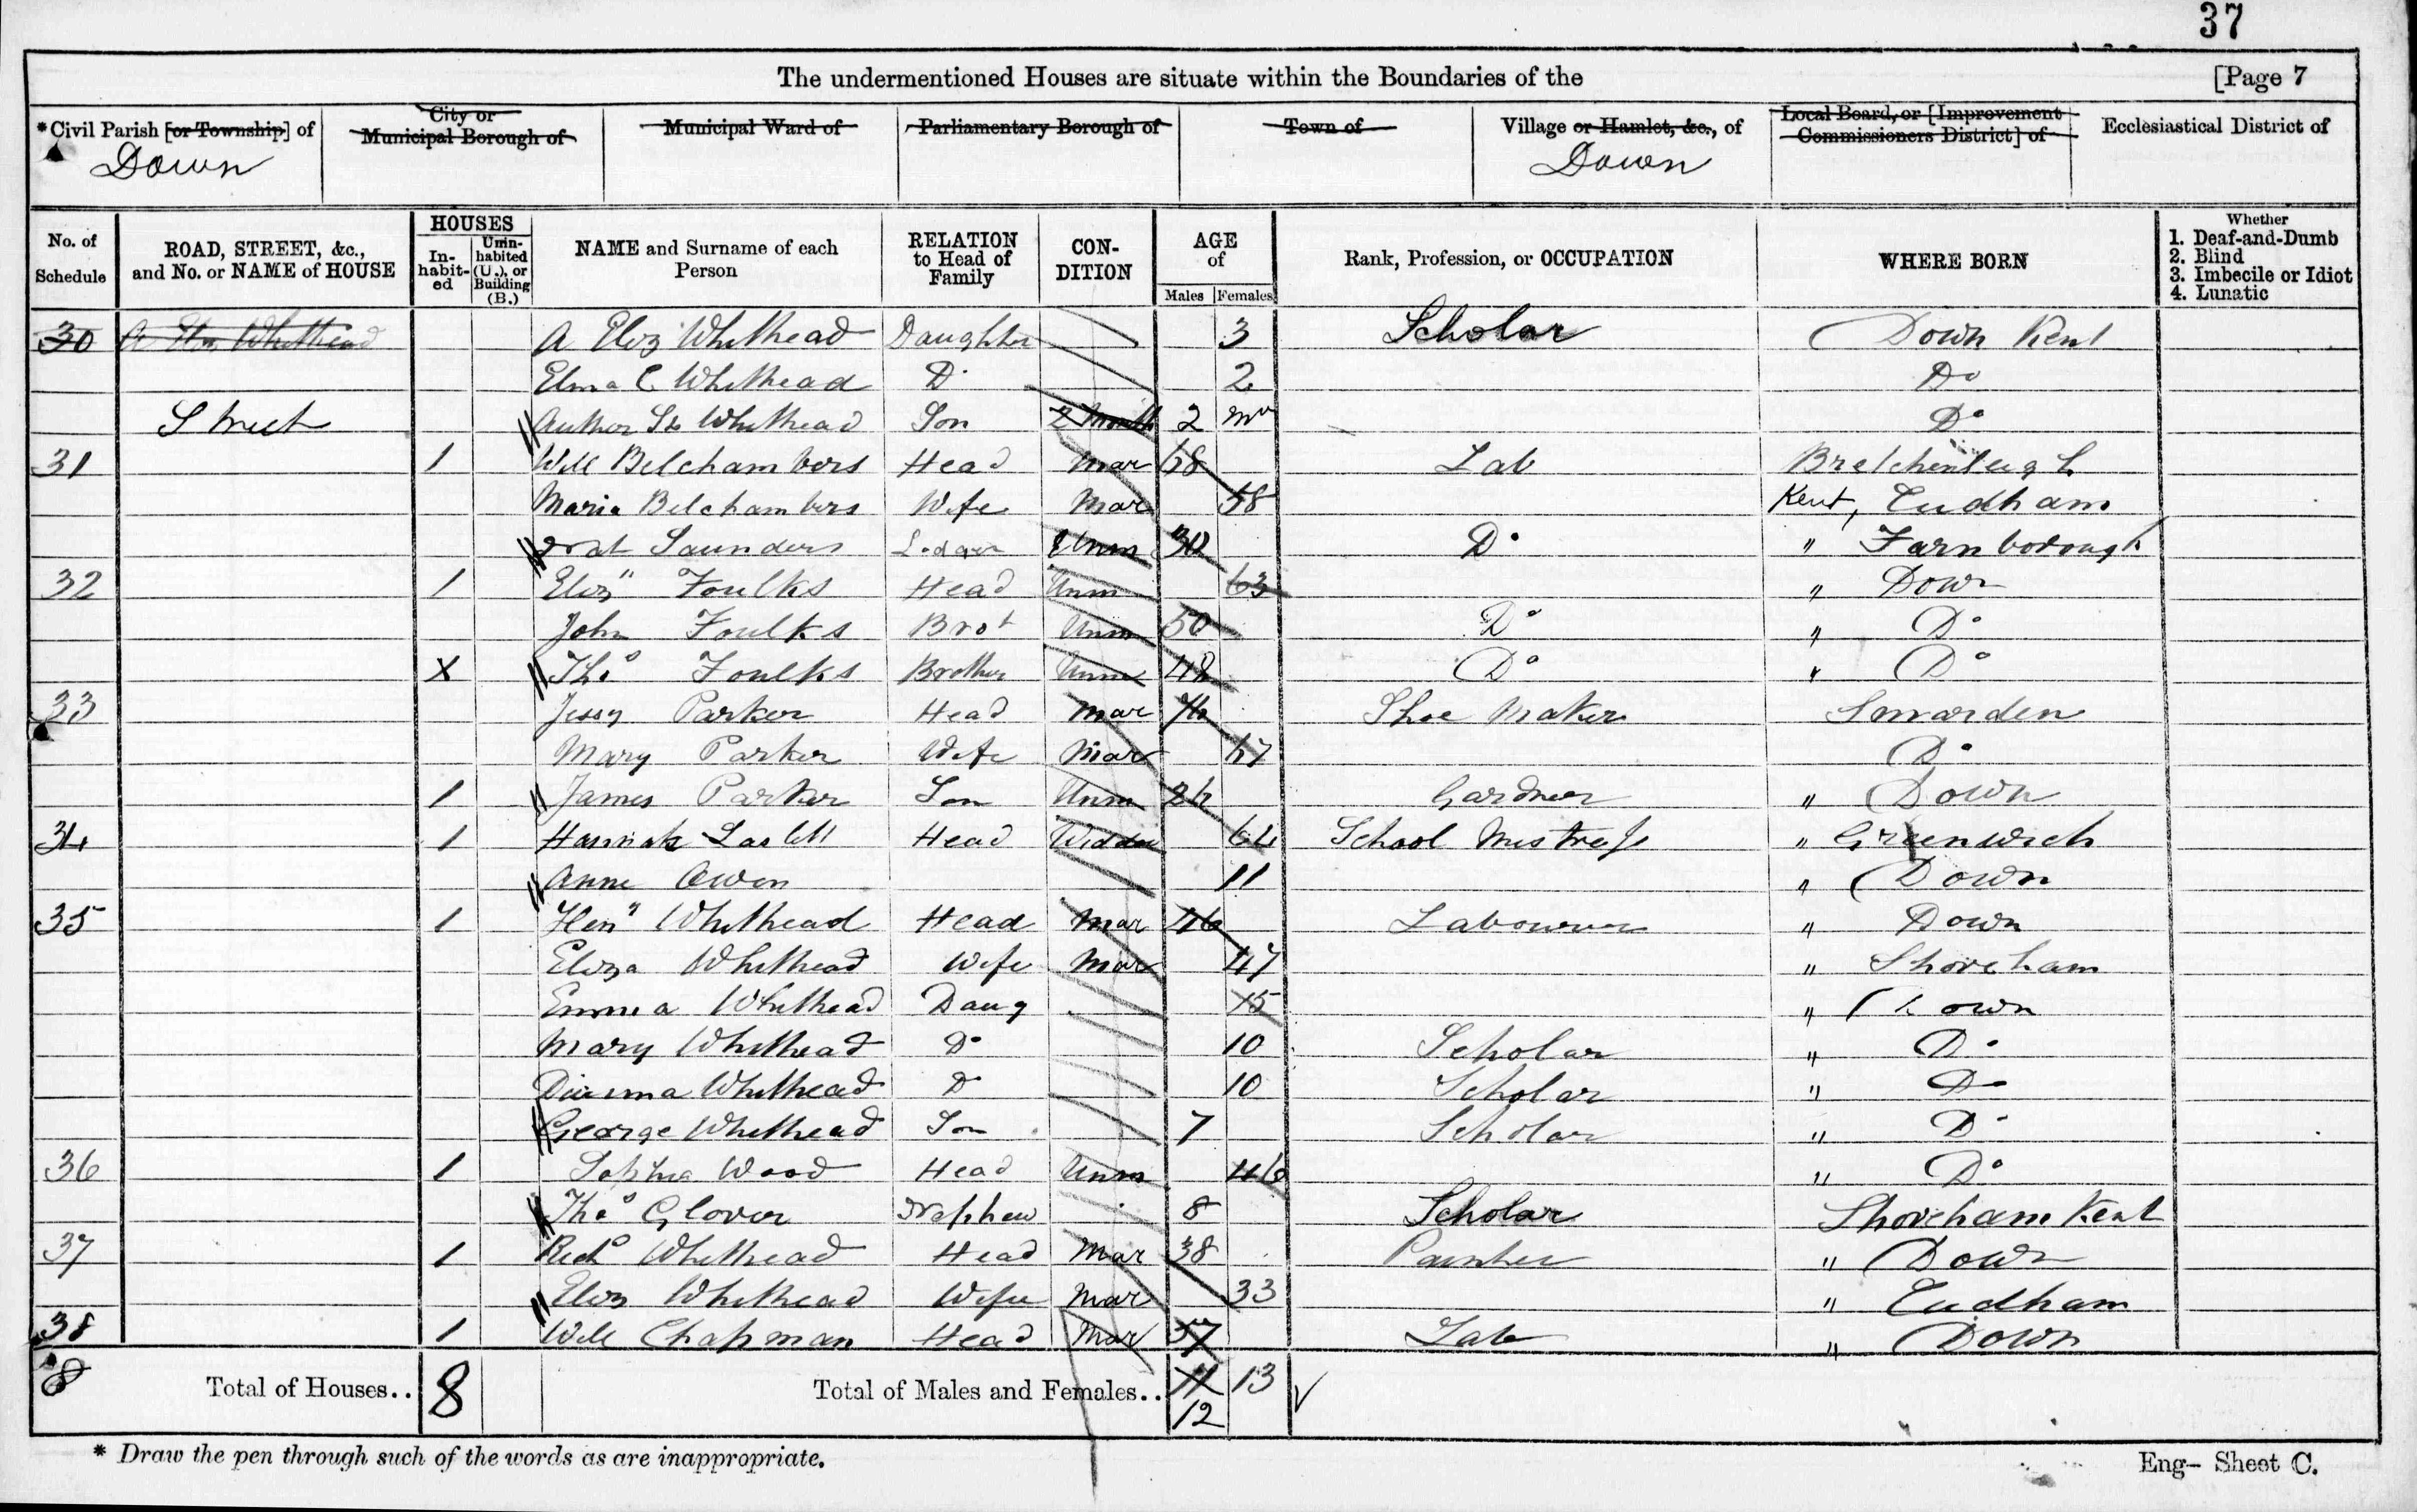 37
The undermentioned Houses are situate within the Boundaries of the [Page 7
*Civil Parish [or Township] of City or Municipal Borough of Municipal Ward of Parliamentary Borough of Town of Village or Hamlet, &c., of Local Board, or [Improvement Commissioners District] of Ecclesiastical District of
Down Down
No. of Schedule ROAD, STREET, &c., and No. or NAME of HOUSE HOUSES In-habit-ed Unin-habited (U.), or Building (B.) NAME and Surname of each Person RELATION to Head of Family CON-DITION AGE of Males Females Rank, Profession, or OCCUPATION WHERE BORN Whether 1. Deaf-and-Dumb 2. Blind 3. Imbecile or Idiot 4. Lunatic
30 A Eliz Whithead A Eliz Whithead Daughter 3 Scholar Down Kent
Elma C Whithead Do 2 Do
Street Author Whithead Son 2 Month 2 mo Do
31 1 Will Belchambers Head Mar 68 Lab Bretchenleigh
Maria Belchambers Wife Mar 58 Kent, Cudham
Nat Saunders Unm 30 Do " Farnborough
32 1 Eliz" Foulks Head Unm 63 " Down
John Foulks Brot Unm 50 Do " Do
X Tho Foulks Brother Unm 48 Do " Do
33 Jessy Parker Head Mar 76 Shoe Maker Smarden
Mary Parker Wife Mar 67 Do
1 James Parker Son Unm 26 Gardner " Down
34 1 Hannah Laslett Head Widdow 64 School Mistress " Greenwich
Anne Owen 11 " Down
35 1 Heny Whithead Head Mar 46 Labourer " Down
Eliza Whithead Wife Mar 47 " Shoreham
Emma Whithead Daug 15 " Down
Mary Whithead Do 10 Scholar " Do
Whithead Do 10 Scholar " Do
George Whithead Son 7 Scholar " Do
36 1 Sophia Wood Head Unm 46 " Do
Tho Glover Nephew 8 Scholar Shoreham Kent
37 1 Richd Whithead Head Mar 38 Painter " Down
Eliz Whithead Wife Mar 33 " Cudham
38 1 Will Chapman Head Mar 37 Lab " Down
8 Total of Houses.. 8 Total of Males and Females.. 11 13
12
* Draw the pen through such of the words as are inappropriate. Eng- Sheet C.